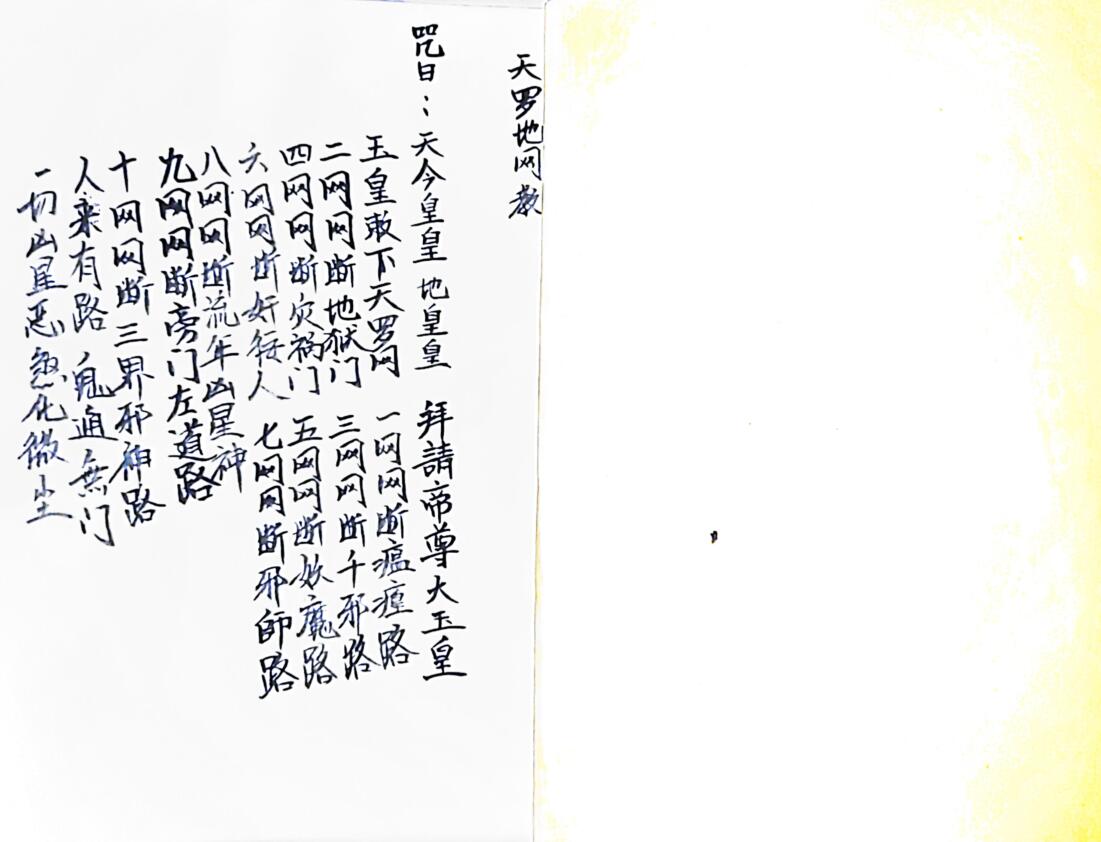 天罗地网教
咒曰：天今皇皇 地皇皇 拜請帝尊大玉皇
玉皇敢下天罗网 一网网断瘟㾮路
二网网断地狱门 三网网断千邪路
四网网断灾祸门 五网网断妖魔路
六网网断奸猛人 七网网断邪師路
八网网断流年凶星神
九网网断旁门左道路
十网网断三界邪神路
人来有路 鬼通無门
一切凶星恶煞化微尘